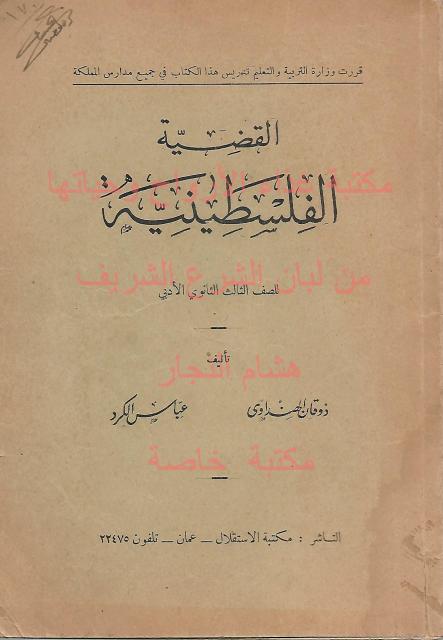 ١٧٠
قررت وزارة التربية والتعليم تدريس هذا الكتاب في جميع مدارس المملكة
القضيّة
الفلسطينيّة
من لبان الشرع الشريف
للصف الثالث الثانوي الأدبي
تأليف
هشام النجار
ذوقان الهنداوي
عبّاس الكرد
مكتبة خاصة
الناشر : مكتبة الاستقلال – عمان – تلفون ٢٢٤٧٥